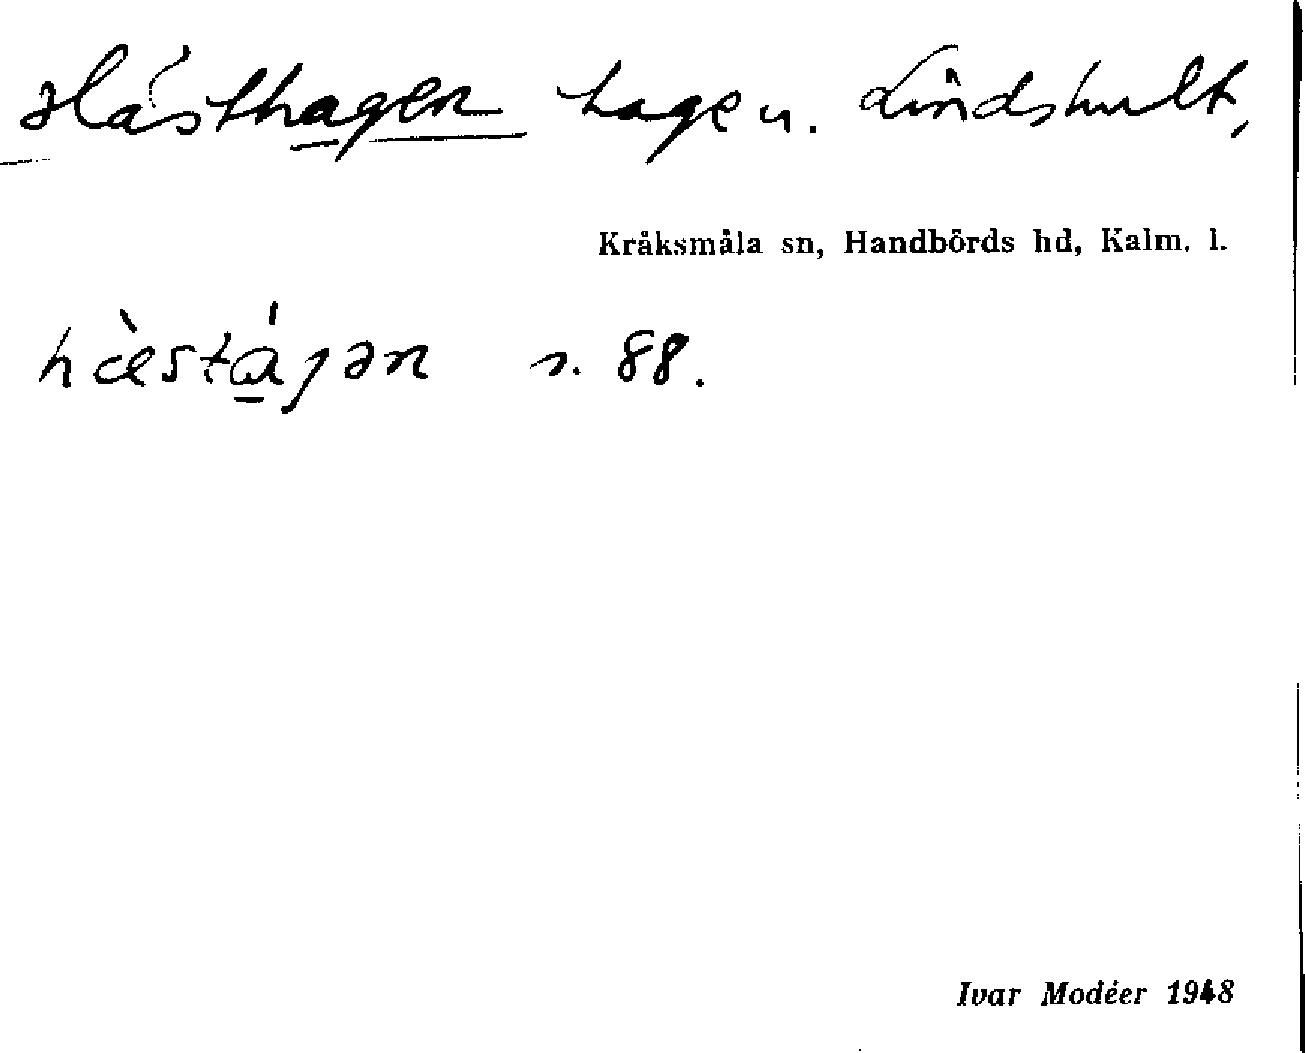 Hästhagen hage u. Lindshult,
Kråksmåla sn, Handbörds hd, Kalm. l.
hæ̀stáɡən s. 88.
Ivar Modéer 1948